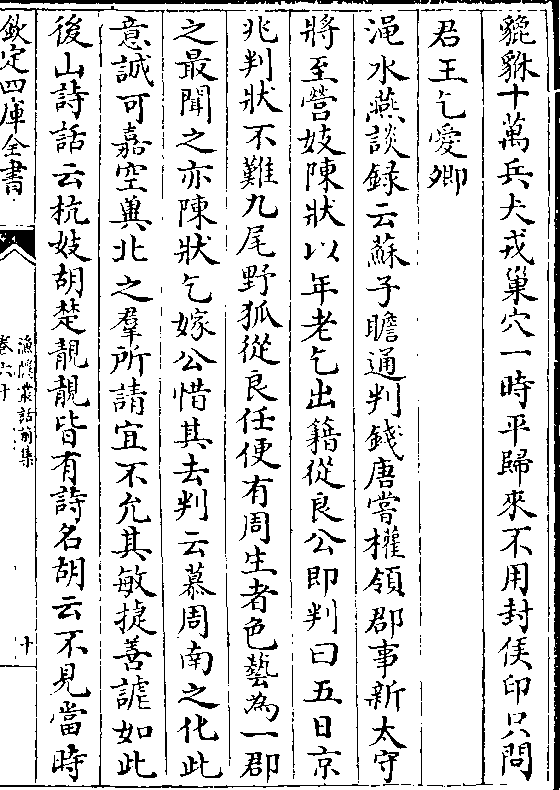 貔貅十萬兵犬戎巢穴一時平歸來不用封侯印只問
君王乞愛卿
渑水燕談錄云蘇子瞻通判錢唐嘗權領郡事新太守
將至營妓陳狀以年老乞出籍從良公即判曰五日京
兆判狀不難九尾野狐從良任便有周生者色藝為一郡
之最聞之亦陳狀乞嫁公惜其去判云慕周南之化此
意誠可嘉空冀北之羣所請宜不允其敏捷善謔如此
後山詩話云杭妓胡楚靚靚皆有詩名胡云不見當時
欽定四庫全書
漁隱叢話前集
卷六十
十